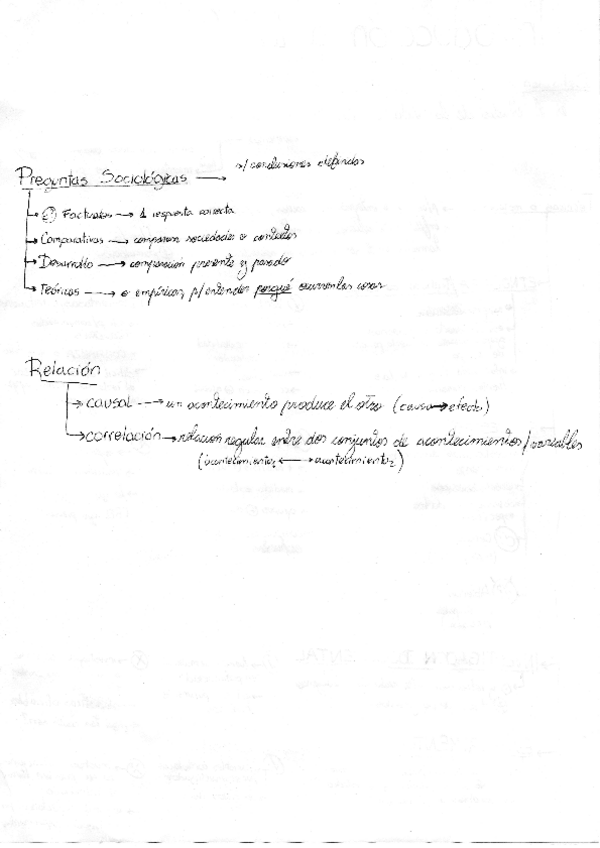 s/ condiciones definidas
Preguntas Sociológicas →
→ Factuales → 1 respuesta correcta
→ Comparativas → comparan sociedades o contextos
→ Desarrollo → comparacion presente y pasado
→ Teóricas → o empíricas, p/entender porqué ocurren las cosas
Relación
→ causal → un acontecimiento produce el otro (causa → efecto)
→ correlación → relacion regular entre dos conjuntos de acontecimientos/variables
(acontecimiento, ← → acontecimiento₂)